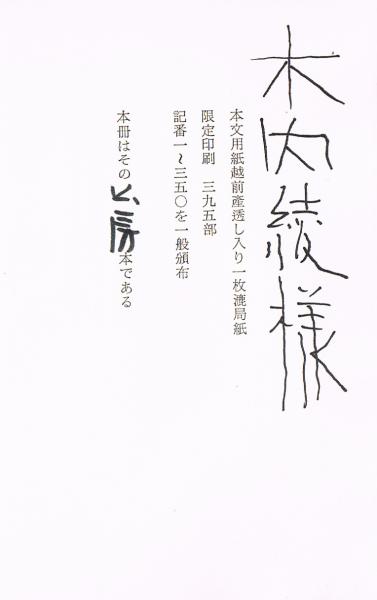 木内綾様
本文用紙越前産透し入り一枚漉局紙
限定印刷　三九五部
記番一〜三五〇を一般頒布
本冊はその 房本である